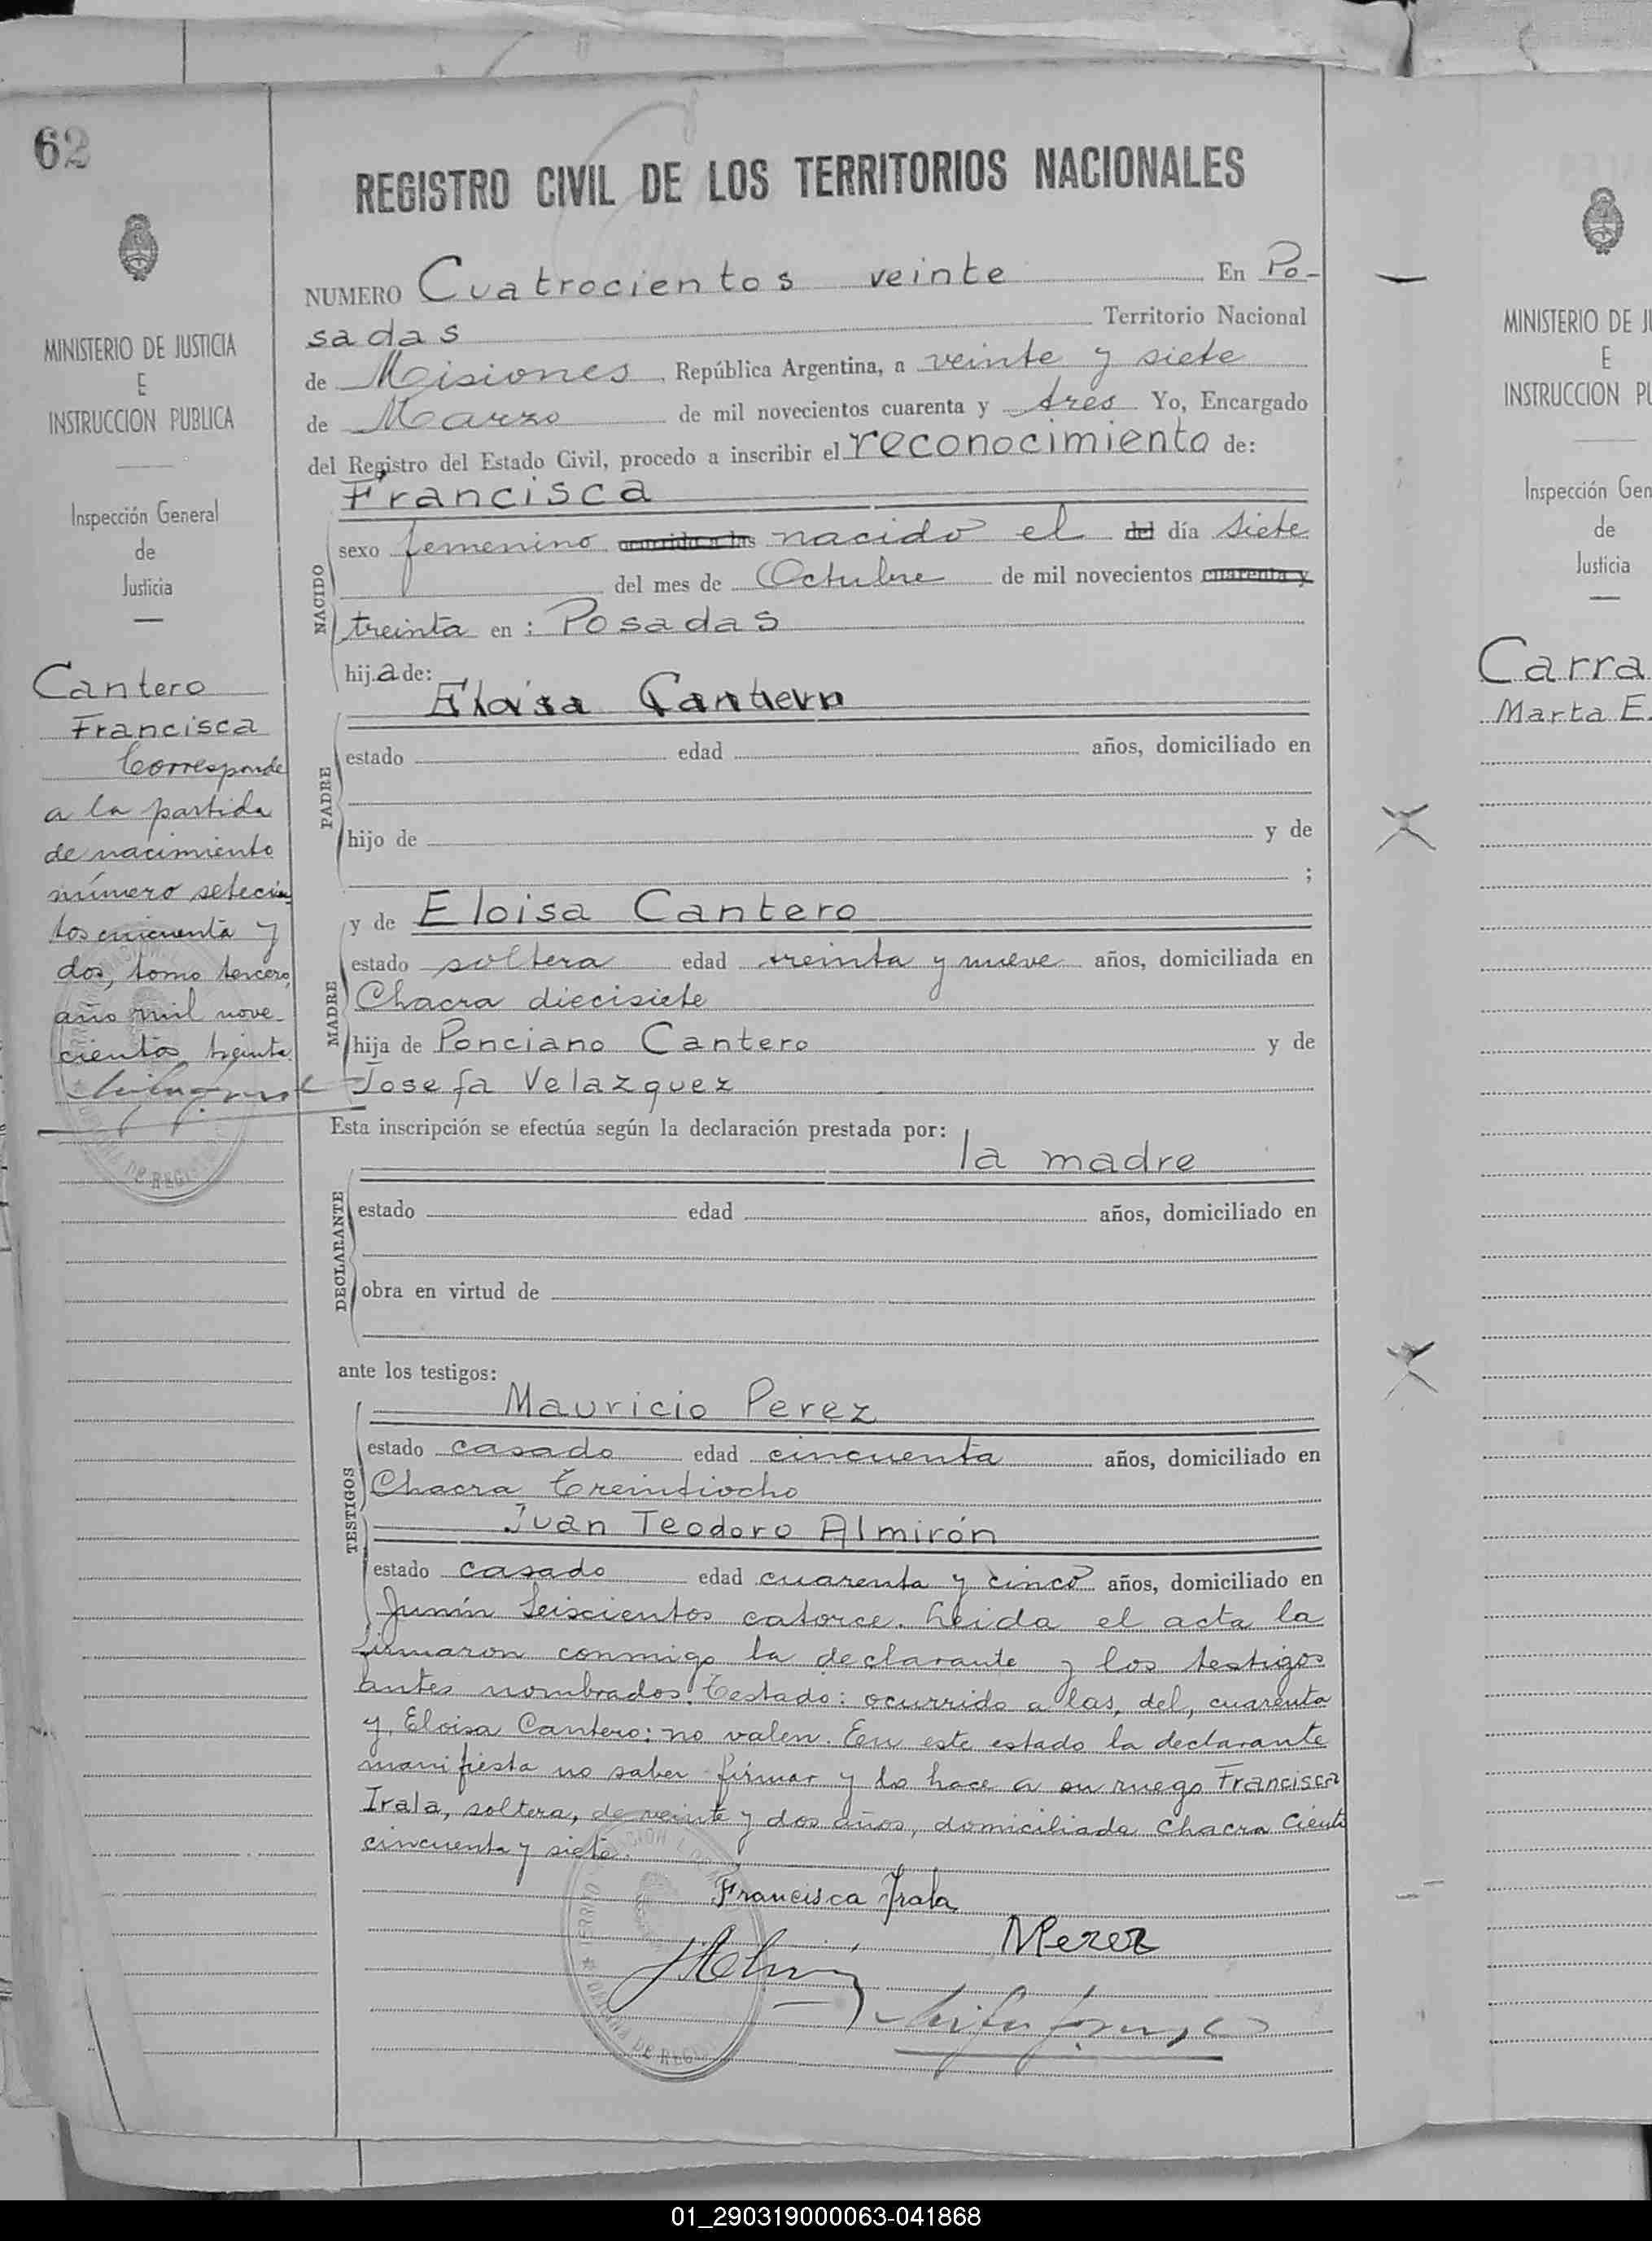 62
MINISTERIO DE JUSTICIA
E
INSTRUCCION PUBLICA
Inspección General
de
Justicia
Cantero
Francisca
Corresponde
a la partida
de nacimiento
número setecien
tos cincuenta y
dos, tomo tercero,
año mil nove-
cientos treinta
REGISTRO CIVIL DE LOS TERRITORIOS NACIONALES
NUMERO Cuatrocientos veinte En Po-
sadas Territorio Nacional
de Misiones, República Argentina, a veinte y siete
de Marzo de mil novecientos cuarenta y tres Yo, Encargado
del Registro del Estado Civil, procedo a inscribir el reconocimiento de:
Francisca
NACIDO
sexo femenino ocurrido a las nacido el del día siete
del mes de Octubre de mil novecientos cuarenta y
treinta en: Posadas
hija de:
Eloisa Cantero
PADRE
estado edad años, domiciliado en
hijo de y de
;
y de Eloisa Cantero
MADRE
estado soltera edad treinta y nueve años, domiciliada en
Chacra diecisiete
hija de Ponciano Cantero y de
Josefa Velazquez
Esta inscripción se efectúa según la declaración prestada por:
la madre
DECLARANTE
estado edad años, domiciliado en
obra en virtud de
ante los testigos:
Mauricio Perez
TESTIGOS
estado casado edad cincuenta años, domiciliado en
Chacra treintiocho
Juan Teodoro Almirón
estado casado edad cuarenta y cinco años, domiciliado en
Junín seiscientos catorce. Leida el acta la
firmaron conmigo la declarante y los testigos
antes nombrados. Testado: ocurrido a las, del, cuarenta
y, Eloisa Cantero: no valen. En este estado la declarante
manifiesta no saber firmar y lo hace a su ruego Francisca
Irala, soltera, de veinte y dos años, domiciliada Chacra Ciento
cincuenta y siete.
Francisca Irala
MPerez
MINISTERIO DE JU
E
INSTRUCCION PU
Inspección Gen
de
Justicia
Carra
Marta E.
01_290319000063-041868